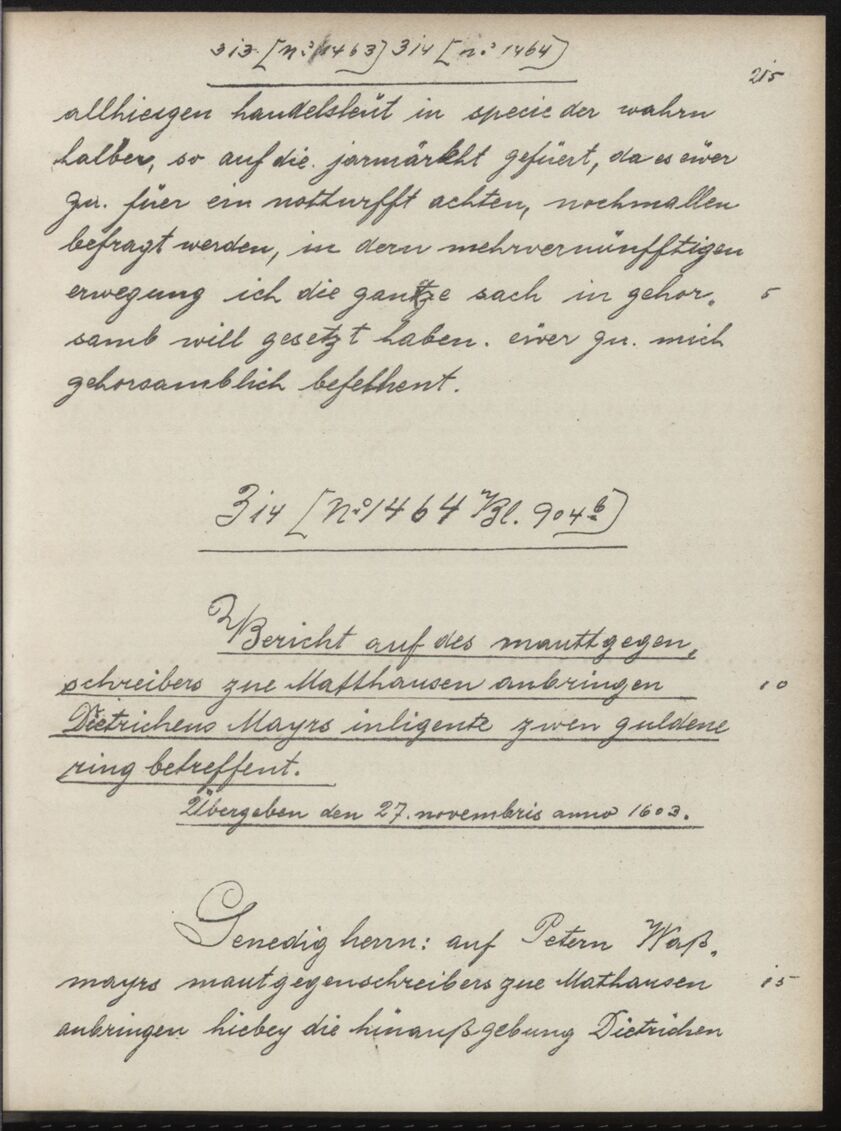 313 [N:o 1463] 314 [N:o 1464]
215
allhiesgen handelsleüt in specie der wahrn
halber, so auf die jarmärkht gefüert, da es eüer
gn. füer ein notturfft achten, nochmallen
befragt werden, in dern mehrvernünfftigen
erwegung ich die gantze sach in gehor„ 5
samb will gesetzt haben. eüer gn. mich
gehorsamblich befelhent.
314 [N:o 1464 Bl. 904b]
Bericht auf des mauttgegen„
schreibers zue Matthausen anbringen 10
Dietrichens Mayrs inligente zwen guldene
ring betreffent.
Übergeben den 27. novembris anno 1603.
Genedig herrn: auf Petern Waß„
mayrs mautgegenschreibers zue Mathausen 15
anbringen hiebey die hinaußgebung Dietrichen